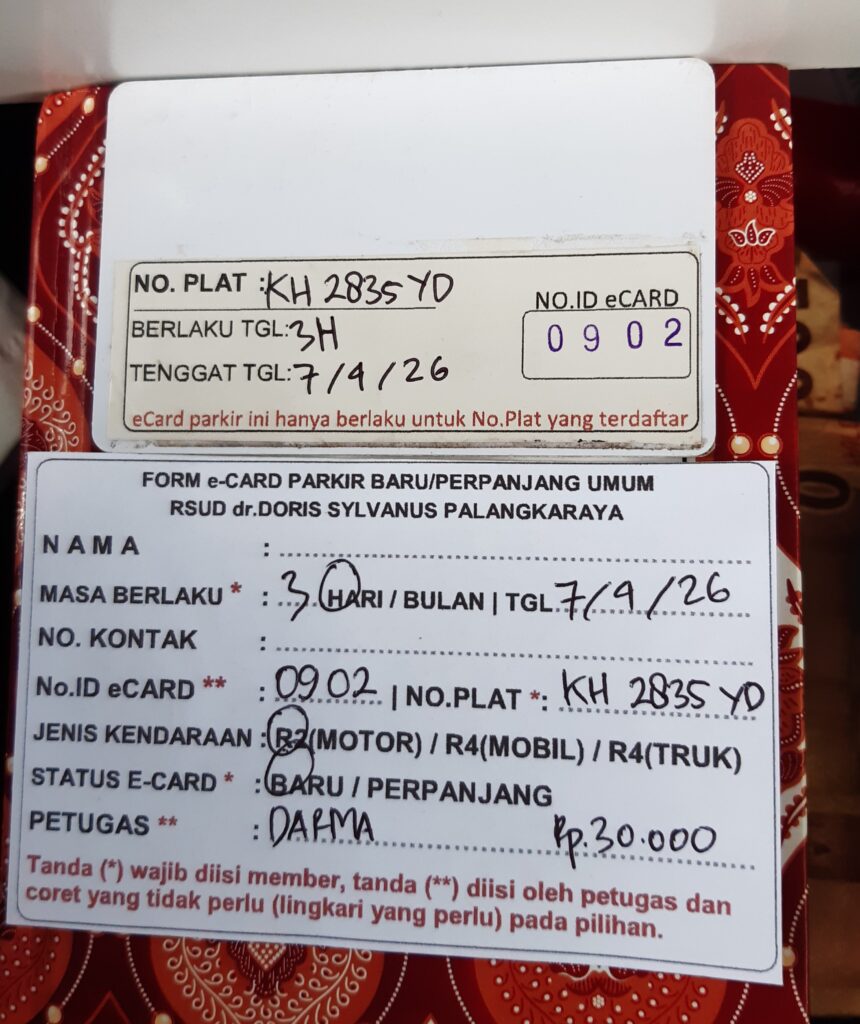 NO. PLAT : KH 2835 YD
BERLAKU TGL: 3H
TENGGAT TGL: 7/4/26
NO.ID eCARD
0902
eCard parkir ini hanya berlaku untuk No.Plat yang terdaftar
FORM e-CARD PARKIR BARU/PERPANJANG UMUM
RSUD dr.DORIS SYLVANUS PALANGKARAYA
NAMA :
MASA BERLAKU * : 3 HARI / BULAN | TGL 7/4/26
NO. KONTAK :
No.ID eCARD ** : 0902 | NO.PLAT *: KH 2835 YD
JENIS KENDARAAN : R2(MOTOR) / R4(MOBIL) / R4(TRUK)
STATUS E-CARD * : BARU / PERPANJANG
PETUGAS ** : DARMA Rp.30.000
Tanda (*) wajib diisi member, tanda (**) diisi oleh petugas dan
coret yang tidak perlu (lingkari yang perlu) pada pilihan.